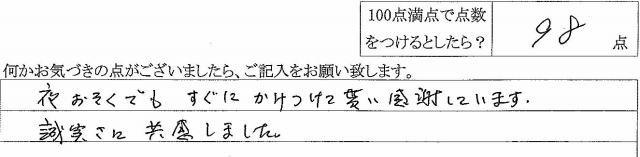 100点満点で点数
をつけるとしたら？ 98 点
何かお気づきの点がございましたら、ご記入をお願い致します。
夜おそくでも すぐに かけつけて貰い感謝しています.
誠実さに 共感しました。